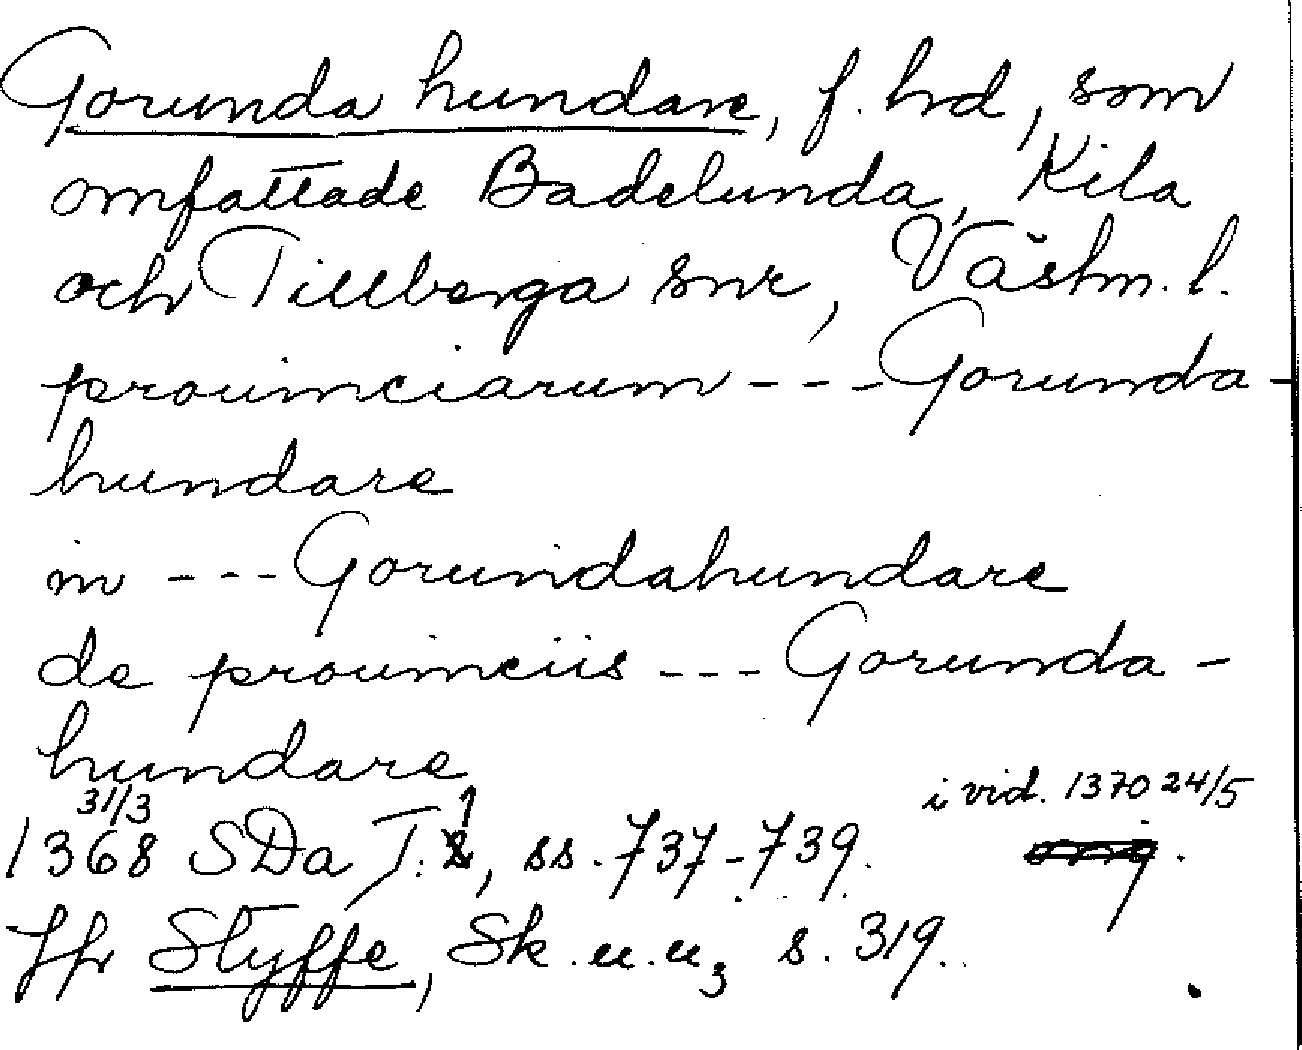 Gorunda hundare, f. hd, som
omfattade Badelunda, Kila
och Tillberga snr, Västm. l.
prouinciarum --- Gorunda-
hundare
in --- Gorundahundare
de prouinciis --- Gorunda-
hundare
31/3 1 i vid. 1370 24/5
1368 SDa T. , ss. 737-739.
Jfr Styffe, Sk.u.u, s. 319.